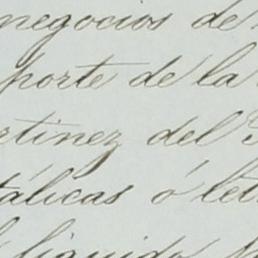 negocios de
porte de la
rtinez del
tálicas ó let
líquido